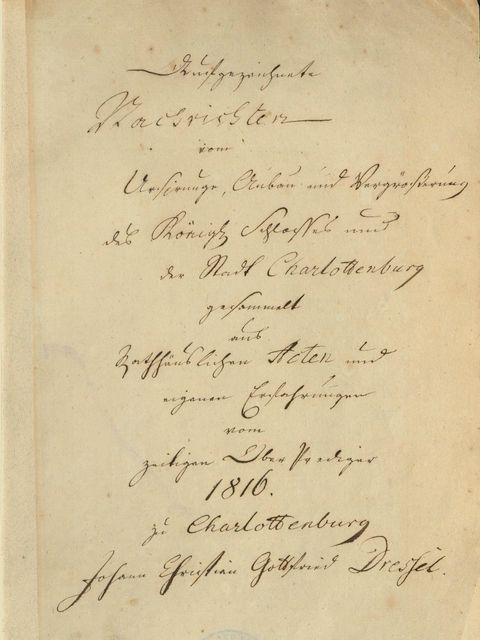 Aufgezeichnete
Nachrichten
vom
Ursprunge, Anbau und Vergrößerung
des Königl. Schlosses und
der Stadt Charlottenburg
gesammelt
aus
Rathhäuslichen Acten und
eigenen Erfahrungen
vom
zeitigen Ober Prediger
1816.
zu Charlottenburg
Johann Christian Gottfried Dressel.